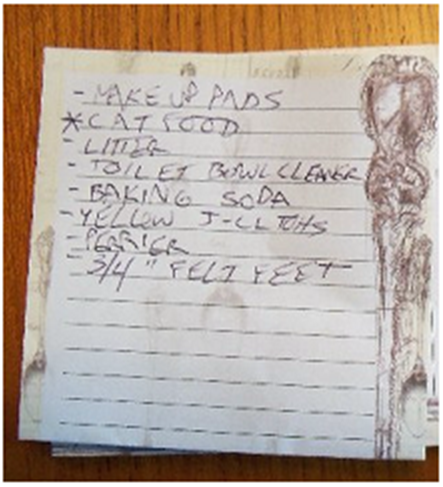 - MAKE UP PADS
* CAT FOOD
- LITTER
- TOILET BOWL CLEANER
- BAKING SODA
- YELLOW J-CLTOHS
- PERRIER
- 3/4" FELT FEET